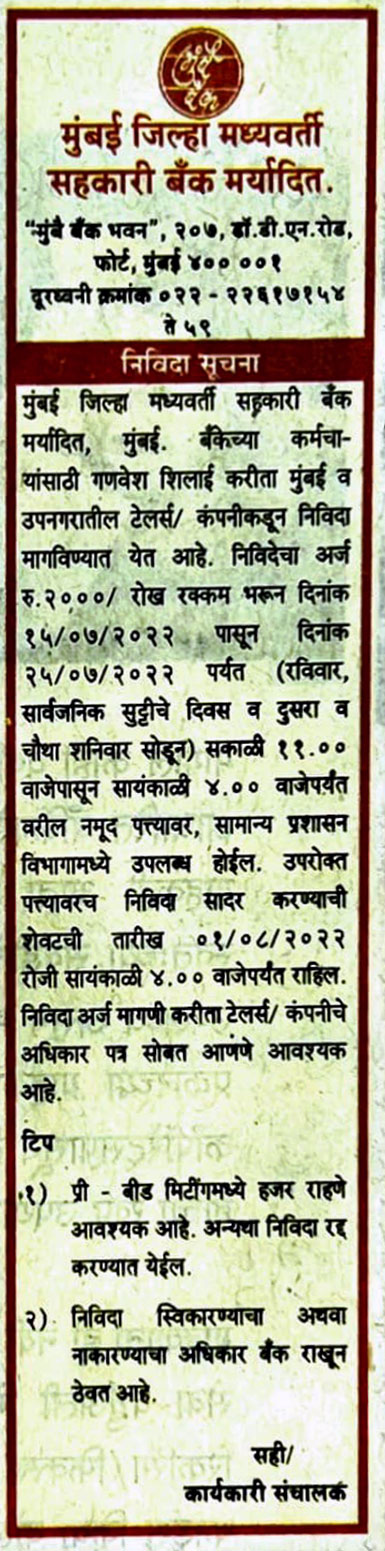 मुंबई बँक
मुंबई जिल्हा मध्यवर्ती
सहकारी बँक मर्यादित.
“मुंबै बँक भवन”, २०७, डॉ.डी.एन.रोड,
फोर्ट, मुंबई ४०० ००१
दूरध्वनी क्रमांक ०२२ - २२६१७१५४
ते ५९
निविदा सूचना
मुंबई जिल्हा मध्यवर्ती सहकारी बँक
मर्यादित, मुंबई. बँकेच्या कर्मचा-
यांसाठी गणवेश शिलाई करीता मुंबई व
उपनगरातील टेलर्स/ कंपनीकडून निविदा
मागविण्यात येत आहे. निविदेचा अर्ज
रु.२०००/ रोख रक्कम भरून दिनांक
१५/०७/२०२२ पासून दिनांक
२५/०७/२०२२ पर्यंत (रविवार,
सार्वजनिक सुट्टीचे दिवस व दुसरा व
चौथा शनिवार सोडून) सकाळी ११.००
वाजेपासून सायंकाळी ४.०० वाजेपर्यंत
वरील नमूद पत्त्यावर, सामान्य प्रशासन
विभागामध्ये उपलब्ध होईल. उपरोक्त
पत्त्यावरच निविदा सादर करण्याची
शेवटची तारीख ०१/०८/२०२२
रोजी सायंकाळी ४.०० वाजेपर्यंत राहिल.
निविदा अर्ज मागणी करीता टेलर्स/ कंपनीचे
अधिकार पत्र सोबत आणणे आवश्यक
आहे.
टिप
१) प्री - बीड मिटींगमध्ये हजर राहणे
आवश्यक आहे. अन्यथा निविदा रद्द
करण्यात येईल.
२) निविदा स्विकारण्याचा अथवा
नाकारण्याचा अधिकार बँक राखून
ठेवत आहे.
सही/
कार्यकारी संचालक